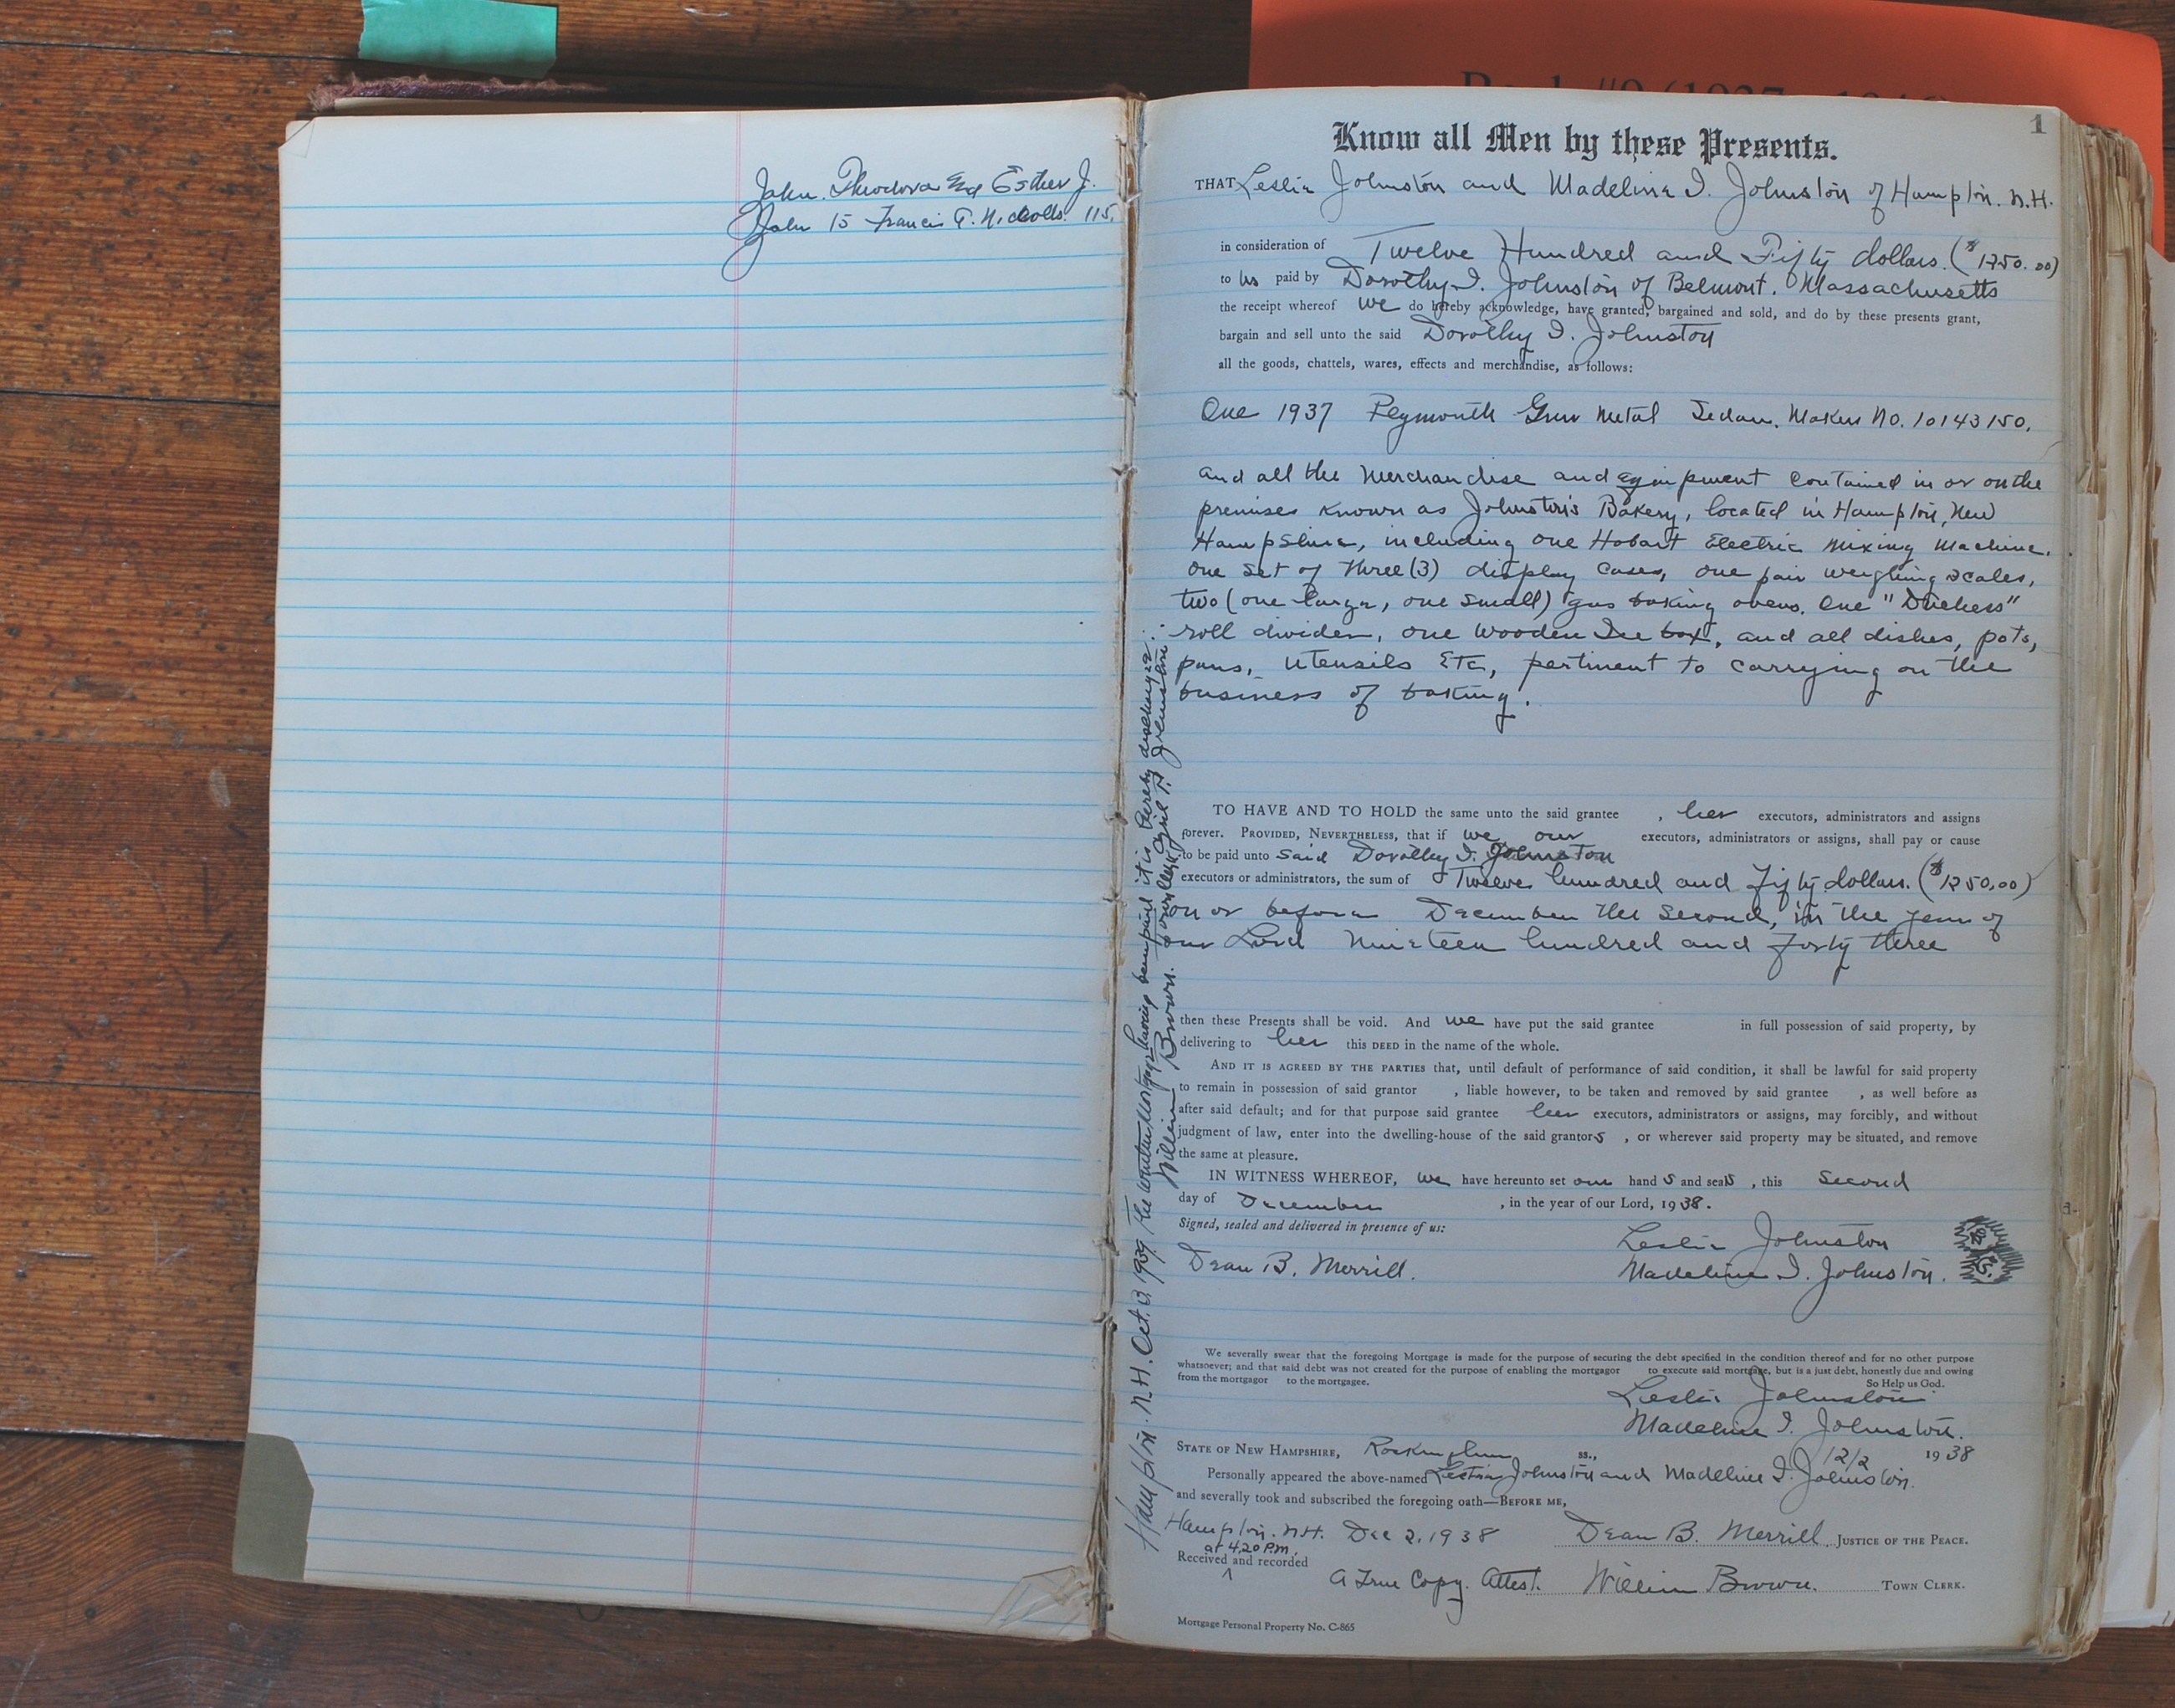 John. Theodora and Esther J.
John 15 Francis T. Nicholls. 115.
1
Know all Men by these Presents.
THAT Leslie Johnston and Madeline I. Johnston of Hampton. N.H.
in consideration of Twelve Hundred and Fifty dollars. ($1250.00)
to us paid by Dorothy I. Johnston of Belmont. Massachusetts
the receipt whereof we do hereby acknowledge, have granted, bargained and sold, and do by these presents grant,
bargain and sell unto the said Dorothy I. Johnston
all the goods, chattels, wares, effects and merchandise, as follows:
One 1937 Plymouth Gun Metal Sedan. Makers No. 10143150.
and all the merchandise and equipment contained in or on the
premises known as Johnston's Bakery, located in Hampton, New
Hampshire, including one Hobart Electric Mixing Machine.
one set of three (3) display cases, one pair weighing scales,
two (one large, one small) gas baking ovens. One "Duchess"
roll divider, one wooden Ice box, and all dishes, pots,
pans, utensils Etc, pertinent to carrying on the
business of baking.
TO HAVE AND TO HOLD the same unto the said grantee , her executors, administrators and assigns
forever. PROVIDED, NEVERTHELESS, that if we our executors, administrators or assigns, shall pay or cause
to be paid unto said Dorothy I. Johnston
executors or administrators, the sum of Twelve hundred and fifty dollars. ($1250.00)
on or before December the second, in the year of
our Lord Nineteen hundred and forty three
then these Presents shall be void. And we have put the said grantee in full possession of said property, by
delivering to her this DEED in the name of the whole.
AND IT IS AGREED BY THE PARTIES that, until default of performance of said condition, it shall be lawful for said property
to remain in possession of said grantor , liable however, to be taken and removed by said grantee , as well before as
after said default; and for that purpose said grantee her executors, administrators or assigns, may forcibly, and without
judgment of law, enter into the dwelling-house of the said grantors , or wherever said property may be situated, and remove
the same at pleasure.
IN WITNESS WHEREOF, we have hereunto set our hand s and seals , this second
day of December , in the year of our Lord, 1938.
Signed, sealed and delivered in presence of us:
Leslie Johnston
Dean B. Merrill. Madeline I. Johnston.
We severally swear that the foregoing Mortgage is made for the purpose of securing the debt specified in the condition thereof and for no other purpose
whatsoever; and that said debt was not created for the purpose of enabling the mortgagor to execute said mortgage, but is a just debt, honestly due and owing
from the mortgagor to the mortgagee. So Help us God.
Leslie Johnston
Madeline I. Johnston.
STATE OF NEW HAMPSHIRE, Rockingham ss., 12/2 1938
Personally appeared the above-named Leslie Johnston and Madeline I. Johnston.
and severally took and subscribed the foregoing oath—BEFORE ME,
Hampton. N.H. Dec 2, 1938 Dean B. Merrill. JUSTICE OF THE PEACE.
at 4.20 P.M.
Received and recorded
A True Copy. Attest. William Brown. TOWN CLERK.
Mortgage Personal Property No. C-865
Hampton. N.H. Oct. 3, 1939. The within Mortgage having been paid it is hereby discharged.
William Brown. Dorothy Johnston